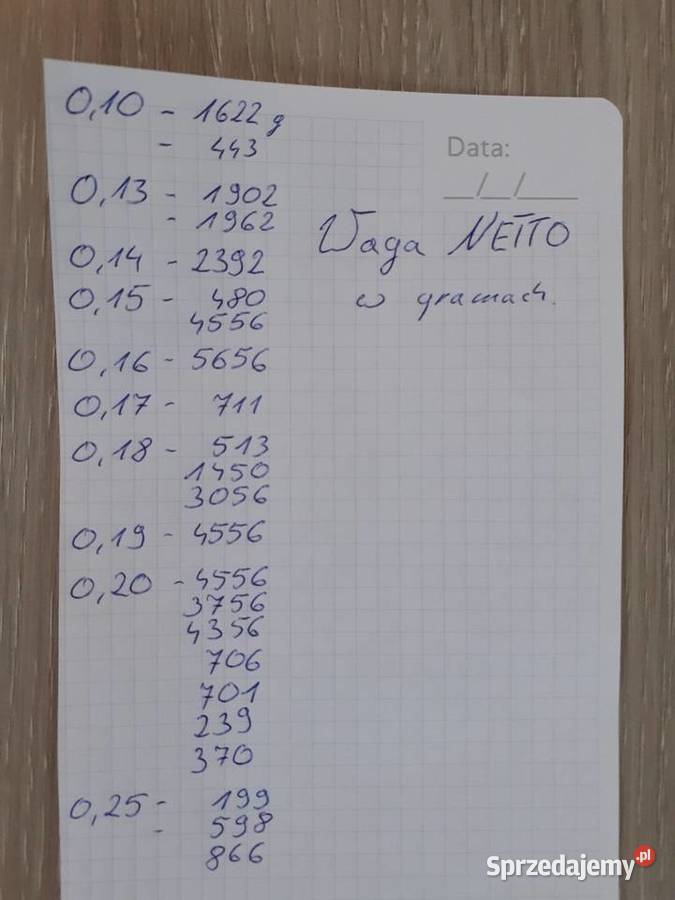 0,10 - 1622 g
- 443
Data:
__/__/____
0,13 - 1902
- 1962
Waga NETTO
0,14 - 2392
0,15 - 480
w gramach.
4556
0,16 - 5656
0,17 - 711
0,18 - 513
1450
3056
0,19 - 4556
0,20 - 4556
3756
4356
706
701
239
370
0,25 - 199
- 598
866
Sprzedajemy.pl